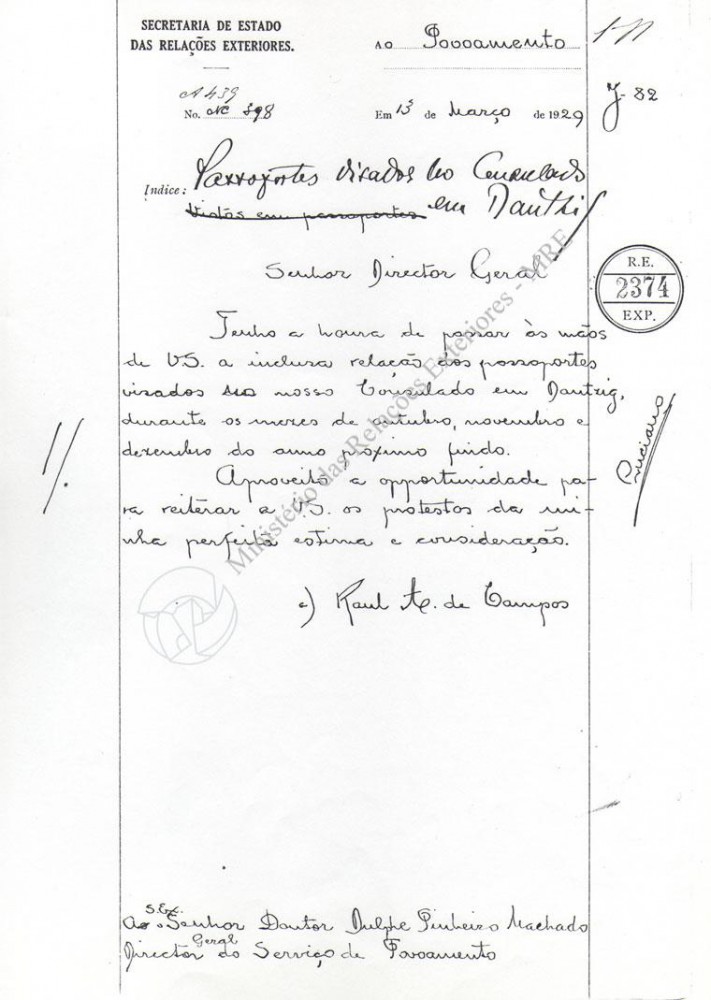 SECRETARIA DE ESTADO
DAS RELAÇÕES EXTERIORES.
AO Povoamento
J- 82
A 439
No. NC 398
Em 13 de Março de 1929
Indice: Passaportes visados no Consulado
Vistos em passaportes em Dantzig
Senhor Director Geral
R.E.
2374
EXP.
Tenho a honra de passar às mãos
de VS. a inclusa relação dos passaportes
visados no nosso Consulado em Dantzig,
durante os mezes de outubro, novembro e
dezembro do anno próximo findo.
Aproveito a opportunidade pa-
ra reiterar a VS. os protestos da mi-
nha perfeita estima e consideração.
a) Raul A. de Campos
S. Ex.
Ao Senhor Doutor Dulphe Pinheiro Machado
Director Geral do Serviço de Povoamento
Ministério das Relações Exteriores - MRE